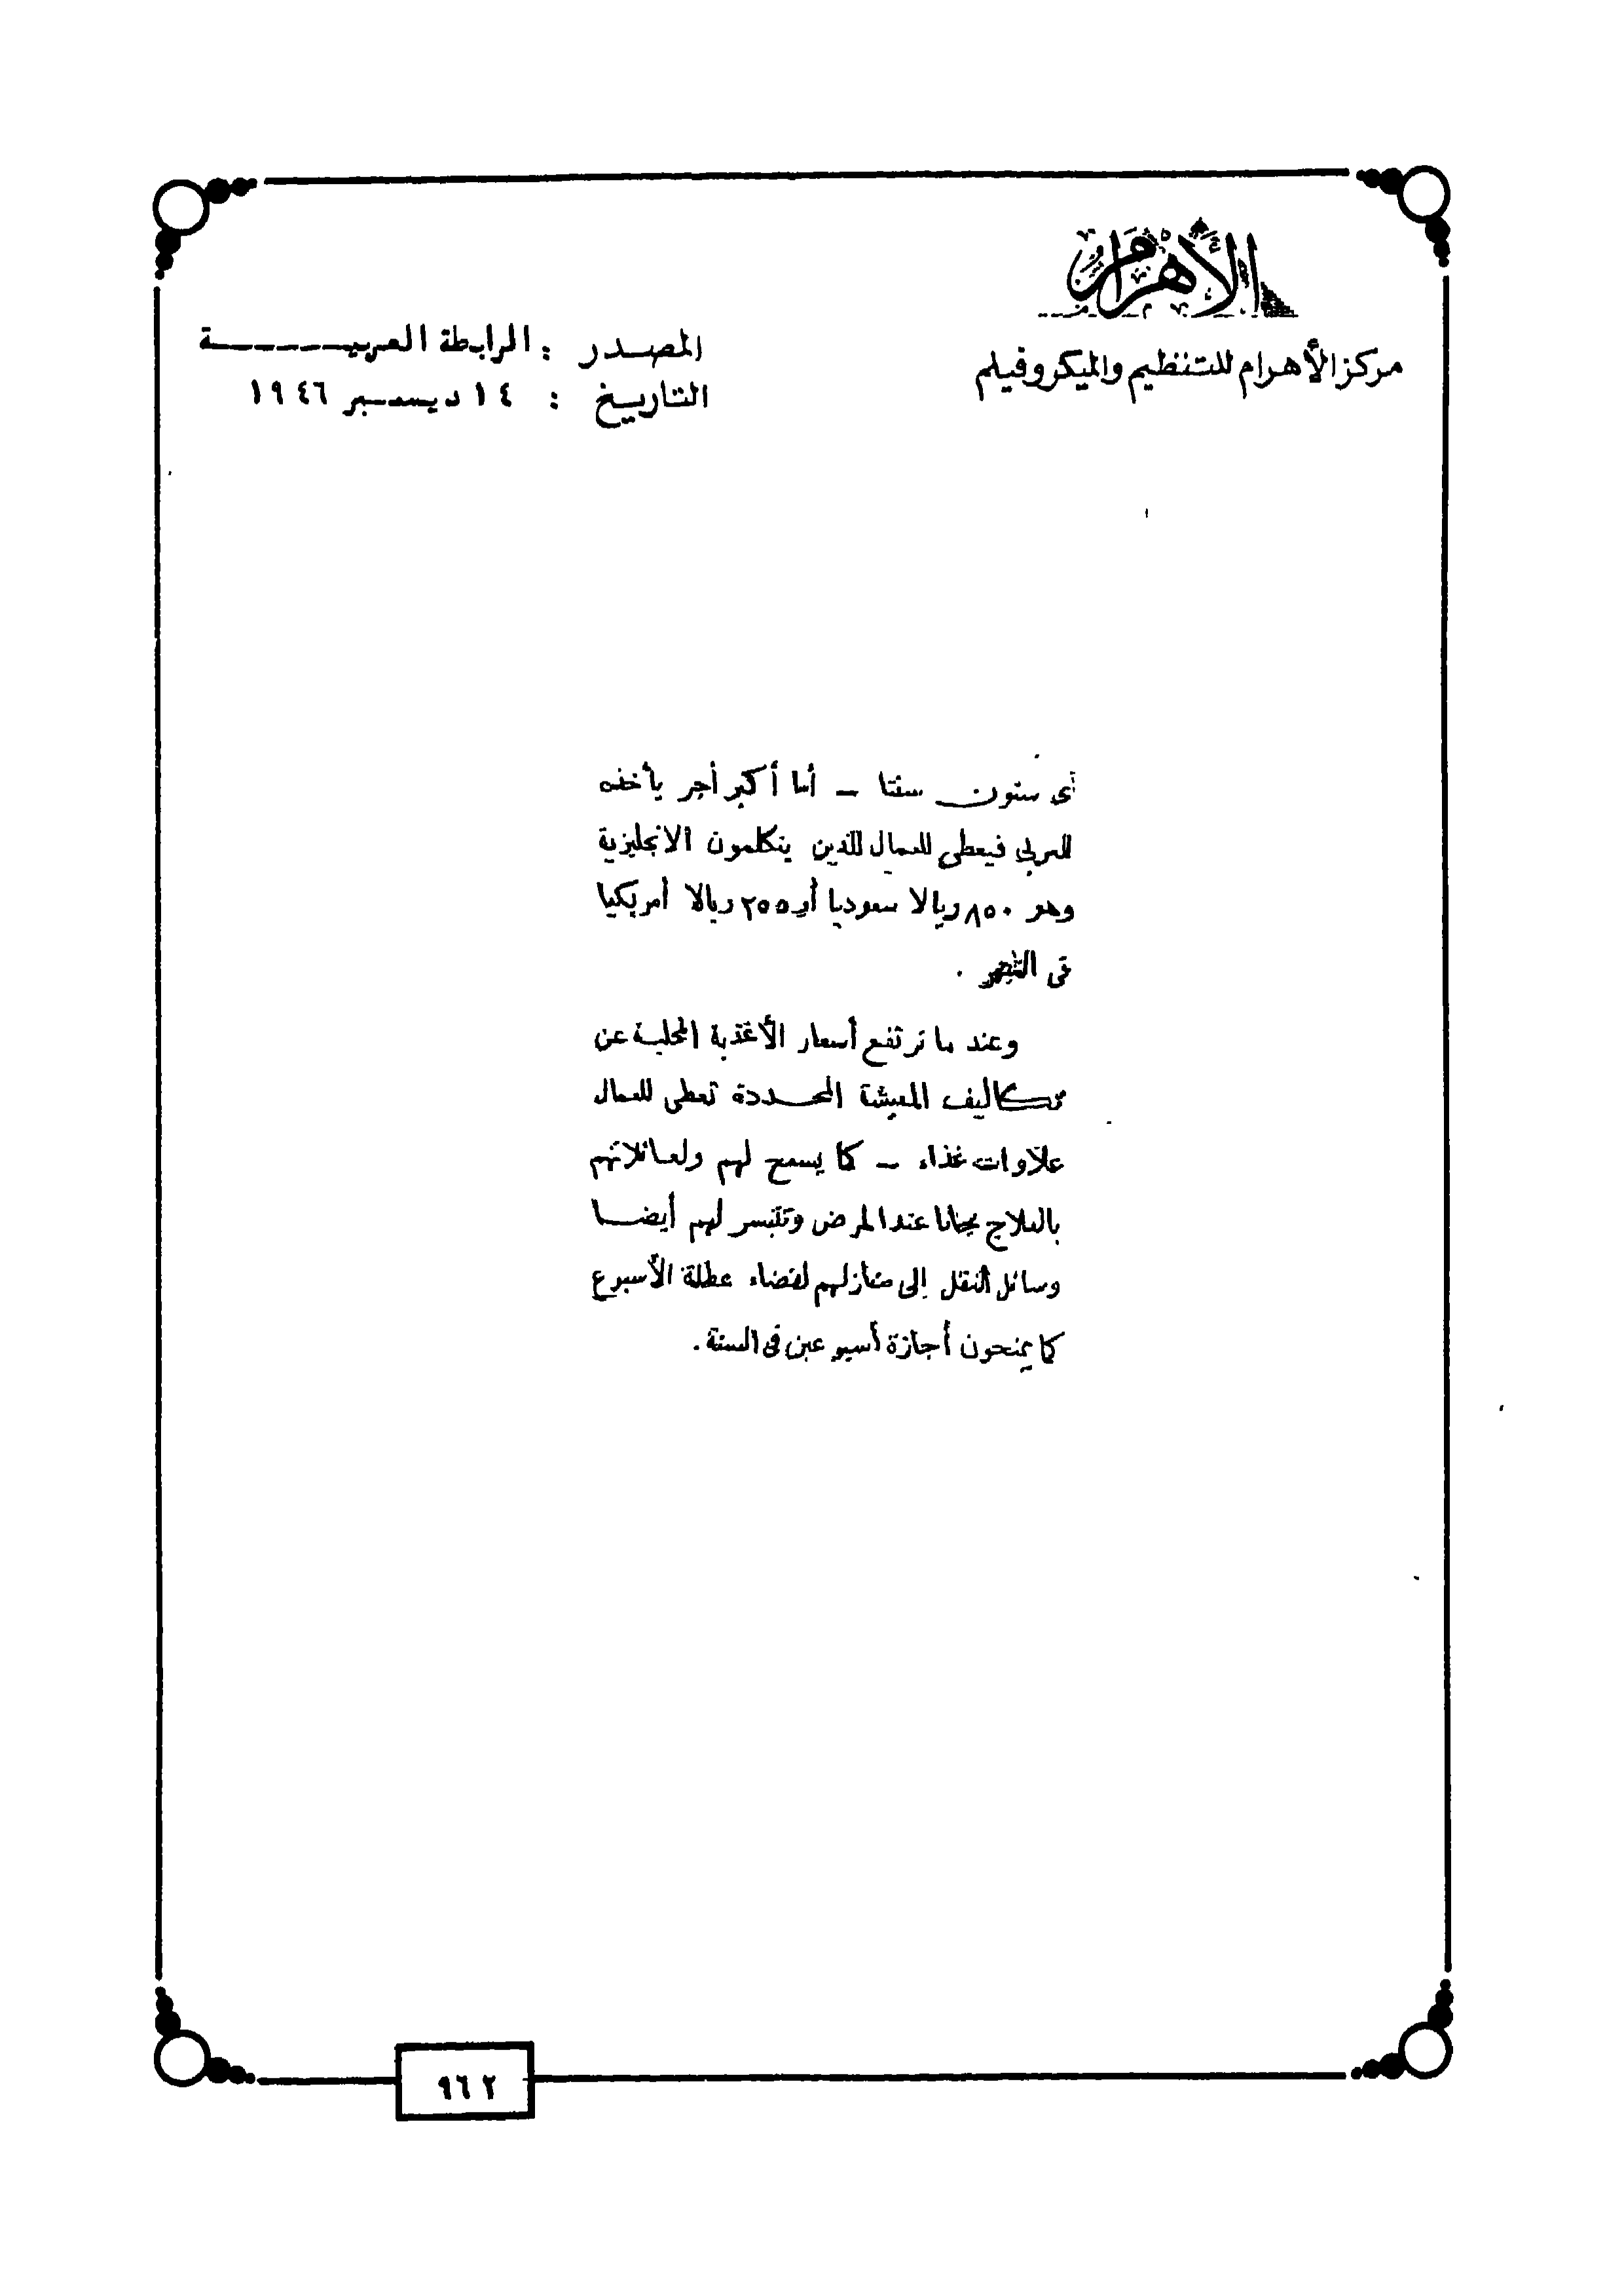 الأهرام
مركز الأهرام للتنظيم والميكروفيلم
المصدر : الرابطة العربية
التاريخ : ١٤ ديسمبر ١٩٤٦
أى ستون سنتا – أما أكبر أجر يأخذه
العربي فيعطى للعمال الذين يتكلمون الانجليزية
وهو ٨٥٠ ريالا سعوديا أو ٢٥٥ ريالا أمريكيا
فى الشهر .
وعند ما ترتفع أسعار الأغذية المحلية عن
تكاليف المعيشة المحددة تعطى للعمال
علاوات غذاء – كما يسمح لهم ولعائلاتهم
بالعلاج مجانا عند المرض وتتيسر لهم أيضا
وسائل النقل إلى منازلهم لقضاء عطلة الأسبوع
كما يمنحون أجازة أسبوعين فى السنة .
٩٦٢